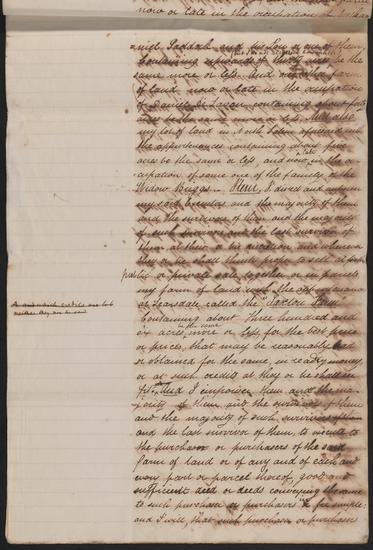 now or late in the occupation of
Paddock and his Son or one of them
Containing upwards of thirty acres be the
same more or less. And one other farm
of land now or late in the occupation
of Daniel containing about forty
acres be the same more or less. And also
my lot of land in North Salem aforesaid with
the appurtenances containing about five
acres be the same or less, and now or late in the oc-
cupation of some one of the family of the
Widow Briggs. Item, I direct and authorize
my said Executors and the majority of them
and the survivor of them and the majority
of such survivors and the last survivor of
them at their or his discretion and whenever
they or he shall think proper to sell at
public or private sale together or in parcels
my farm of land with the appurtenances
at Scarsdale called the "Saxton Farm"
Containing about Three hundred and
six acres, be the same more or less, for the best price
or prices, that may be reasonably had
or obtained for the same, in ready money
or at such credits as they or he shall
fit. And I empower them and the ma-
jority of them, and the survivor of them
and the majority of such survivors
and the last survivor of them, to execute to
the purchaser or purchasers of the said
farm of land or of any and of each and
every part or parcel thereof, good and
sufficient deed or deeds conveying the same
to such purchaser or purchasers in fee simple:
and I will, that such purchaser or purchasers